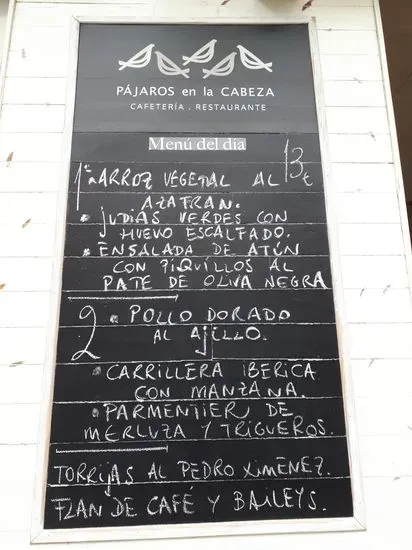 PÁJAROS en la CABEZA
CAFETERÍA . RESTAURANTE
Menú del día
13€
1º • ARROZ VEGETAL AL
AZAFRAN.
• JUDIAS VERDES CON
HUEVO ESCALFADO.
• ENSALADA DE ATÚN
CON PIQUILLOS AL
PATE DE OLIVA NEGRA
2 • POLLO DORADO
AL AJILLO.
• CARRILLERA IBERICA
CON MANZANA.
• PARMENTIER DE
MERLUZA Y TRIGUEROS.
TORRIJAS AL PEDRO XIMENEZ.
FLAN DE CAFÉ Y BAILEYS.